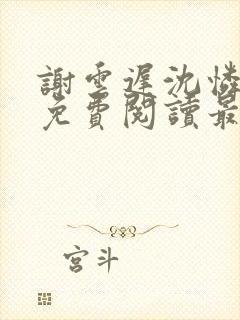 謝雲遲沈憐
免費閱讀最
宮斗